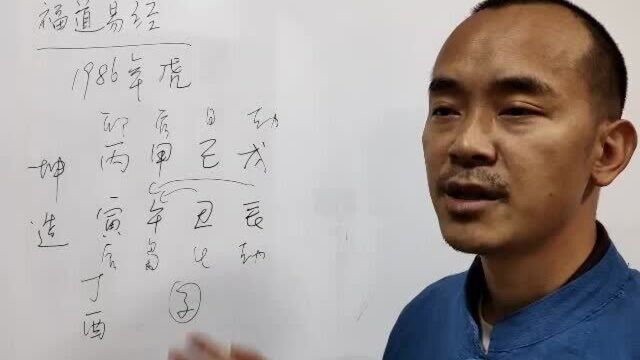 福道易经
1986年虎
印 官 日 劫
坤 丙 甲 己 戊
造 寅 午 丑 辰
官 枭 比 劫
丁
酉
子